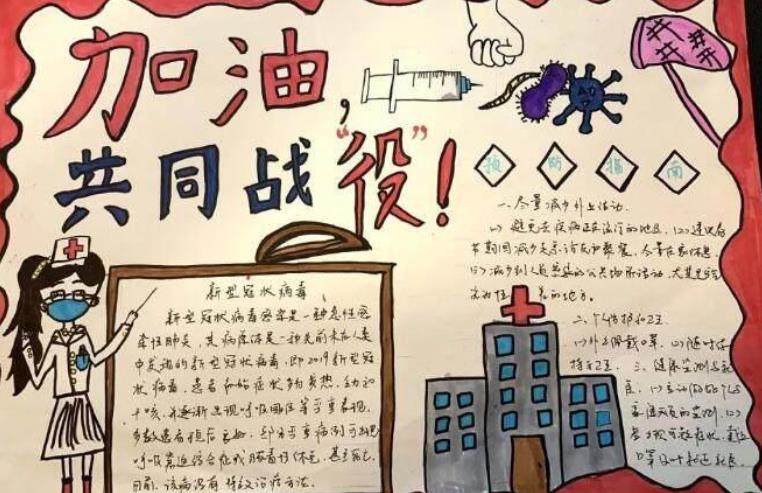 加油，
共同战“役”！
预防指南
一、尽量减少外出活动。
(1) 避免去疾病正在流行的地区。(2)建议春
节期间减少走亲访友和聚餐，尽量在家休息。
(3)减少到人员密集的公共场所活动，尤其是空
的地方。
二、个人防护和卫
(1)外出佩戴口罩。(2)随时保
持 卫生 三、健康监测与就
医。(1)主动
新型冠状病毒
新型冠状病毒感染是一种急性感
染性肺炎，其病原体是一种先前未在人类
中发现的新型冠状病毒，即2019新型冠
状病毒，患者初始症状多为发热、乏力和
干咳，并逐渐出现呼吸困难等严重表现。
多数患者预后良好，部分严重病例可出现
呼吸窘迫综合征或脓毒性休克，甚至死亡
目前，该病没有特效治疗方法。